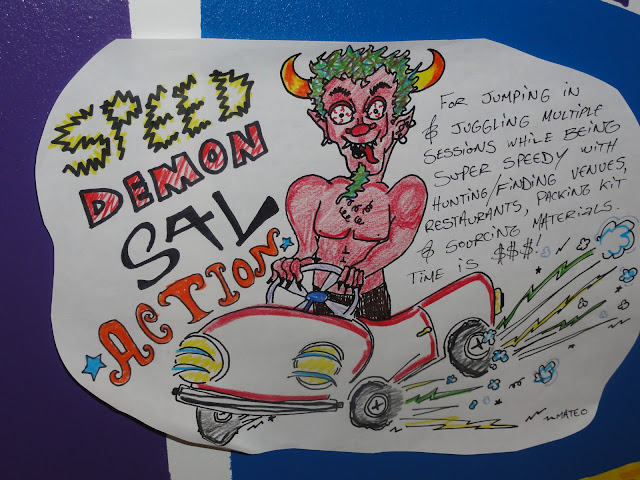 SPEED
DEMON
SAL
ACTION
FOR JUMPING IN
& JUGGLING MULTIPLE
SESSIONS WHILE BEING
SUPER SPEEDY WITH
HUNTING/FINDING VENUES,
RESTAURANTS, PACKING KIT
& SOURCING MATERIALS.
TIME IS $$$!
MATEO